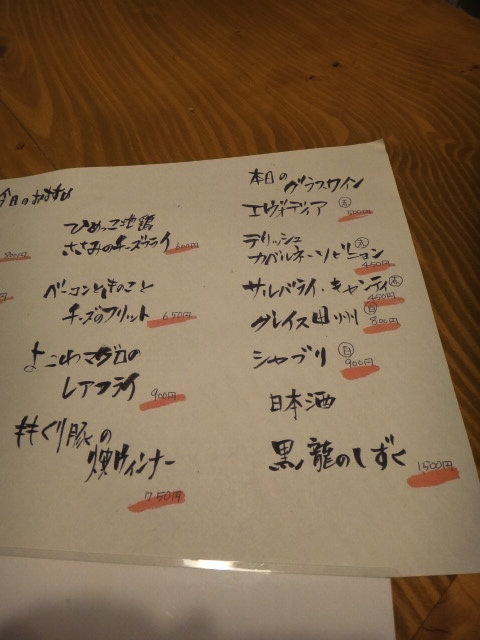 今日のおすすめ
800円
円
ひめっこ地鶏
ささみのチーズフライ 600円
ベーコンときのこと
チーズのフリット 650円
よこわマグロの
レアフライ 900円
どんぐり豚の
焼ウィンナー
750円
本日の
グラスワイン
エヴォディア 赤 500円
デリッシュ 赤
カバルネ・ソービニョン 450円
サルバライ・キャンティ 赤 450円
グレイス甲州 白 800円
シャブリ 白 900円
日本酒
黒龍のしずく 1500円